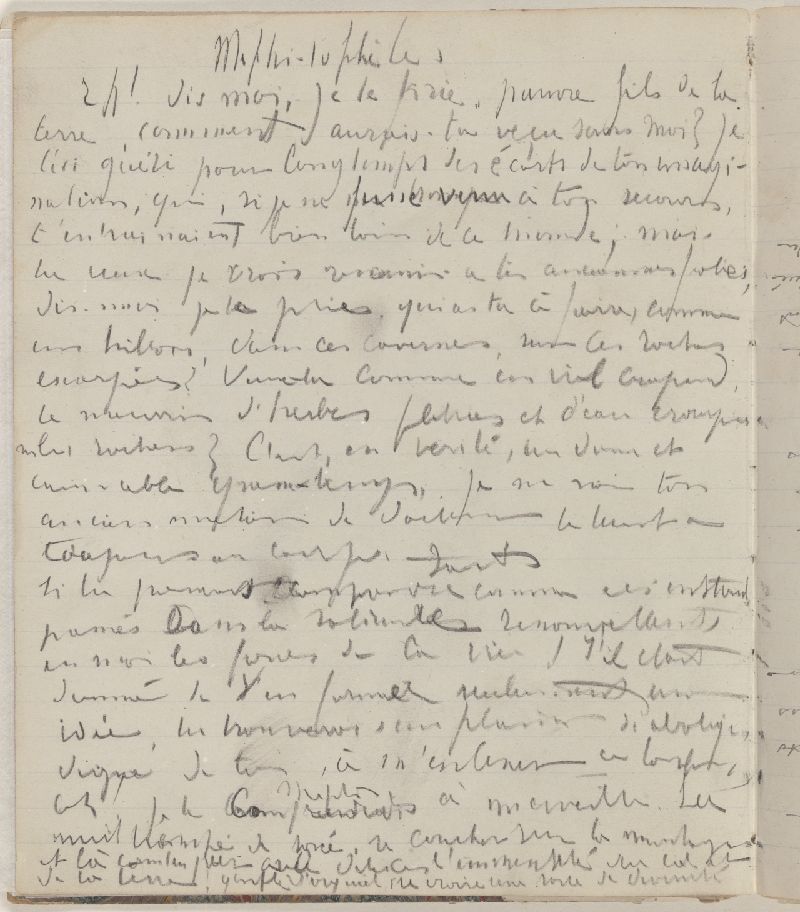 Mephistopheles
Eh! dis moi, je te prie, pauvre fils de la
terre, comment aurais-tu vécu sans moi? Je
t'ai guéri pour longtemps des écarts de ton imagi-
nations, qui, si je ne fusse venu à ton secours,
t'entrainaient bien loin de ce monde; mais
tu veux je crois revenir à tes anciennes folies,
dis-moi je te prie, qu'as tu à faire, comme
un hibou, dans ces cavernes, sur ces roches
escarpées? Veux-tu comme un vil crapaud,
te nourrir d'herbes flétries et d'eau croupie
sur les rochers? C'est, en vérité, un doux et
aimable passe-temps. Je
ancien de docteur te tient
toujours au corps. Faust
Si tu pouvais comprendre comme ces instants
passés Dans la solitude renouvellent
en moi les forces de la vie! S'il était
donné de t'en former seulement une
idée, tu trouverais un plaisir diabolique,
digne de toi, à m'enlever
je te comprends à merveille. La
nuit trempé de rosée, se coucher sur la montagne
et là contempler avec délices l'immensité du ciel et
de la terre, gonflé d'orgueil, se croire une sorte de divinité